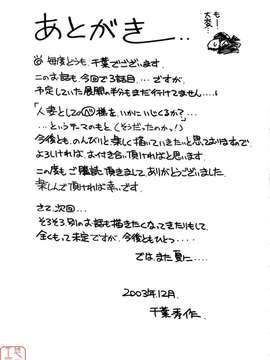 あとがき...
もー
大変...
毎度どうも、千葉でございます。
このお話も、今回で3話目...ですが、
予定していた展開の半分もまだ行けてません...。
「人妻としての様をいかにいじくるか?...
...というテーマのもと(そうだったのかっ!)
今後とも、のんびりと楽しく描いていきたいと思っておりますので
よろしければ、お付き合い頂ければと思います。
この度もご購読頂きまして ありがとうございました。
楽しんで頂ければ幸いです。
さて、次回...
そろそろ、別のお話も描きたくなってきたりもして、
全くもって未定ですが、今後ともひとつ....
では、また夏に....
2003年12月.
千葉秀作.